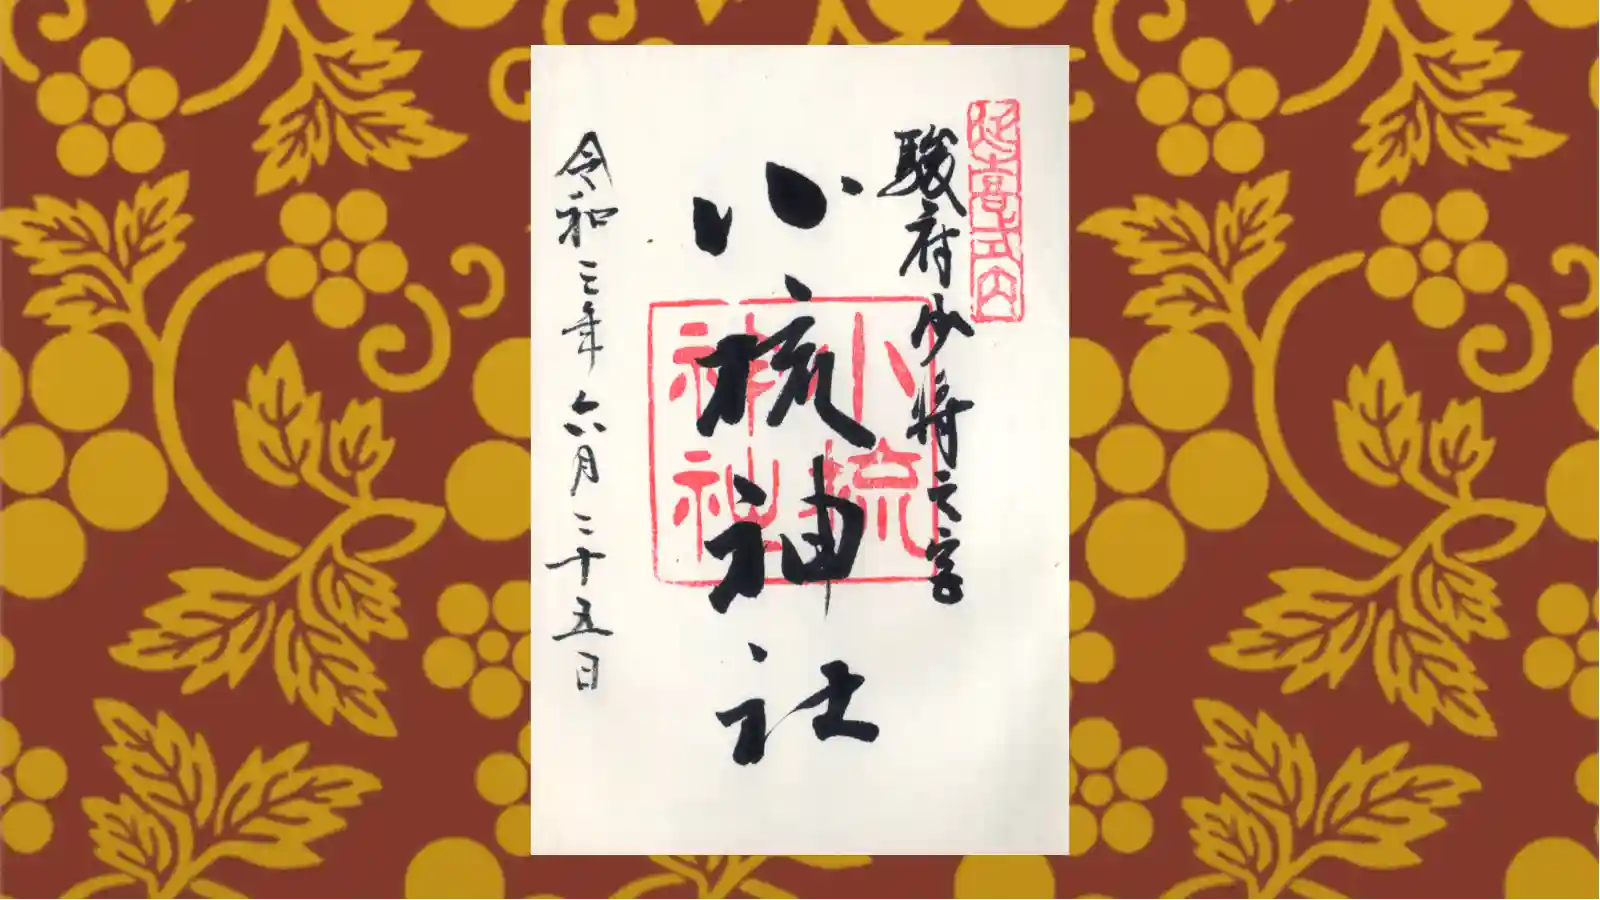 延喜式内
駿府少将之宮
小梳神社
小梳
神社
令和三年六月二十五日